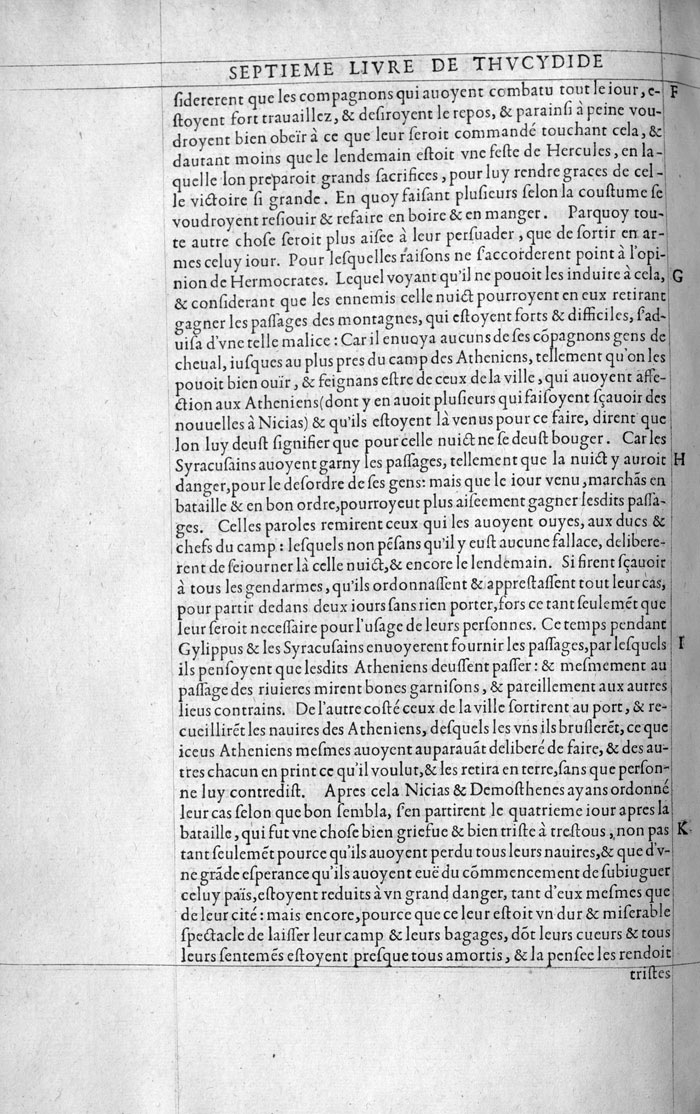 SEPTIEME LIVRE DE THVCYDIDE
ſidererent que les compagnons qui auoyent combatu tout le iour, e- F
ſtoyent fort trauaillez, & deſiroyent le repos, & parainſi à peine vou-
droyent bien obeïr à ce que leur ſeroit commandé touchant cela, &
dautant moins que le lendemain eſtoit vne feſte de Hercules, en la-
quelle lon preparoit grands ſacrifices, pour luy rendre graces de cel-
le victoire ſi grande. En quoy faiſant pluſieurs ſelon la couſtume ſe
voudroyent reſiouir & refaire en boire & en manger. Parquoy tou-
te autre choſe ſeroit plus aiſee à leur perſuader, que de ſortir en ar-
mes celuy iour. Pour leſquelles raiſons ne ſ'accorderent point à l'opi-
nion de Hermocrates. Lequel voyant qu'il ne pouoit les induire à cela, G
& conſiderant que les ennemis celle nuict pourroyent en eux retirant
gagner les paſſages des montagnes, qui eſtoyent forts & difficiles, ſ'ad-
uiſa d'vne telle malice : Car il enuoya aucuns de ſes cõpagnons gens de
cheual, iuſques au plus pres du camp des Atheniens, tellement qu'on les
pouoit bien ouïr, & feignans eſtre de ceux de la ville, qui auoyent affe-
ction aux Atheniens (dont y en auoit pluſieurs qui faiſoyent ſçauoir des
nouuelles à Nicias) & qu'ils eſtoyent là venus pour ce faire, dirent que
lon luy deuſt ſignifier que pour celle nuict ne ſe deuſt bouger. Car les
Syracuſains auoyent garny les paſſages, tellement que la nuict y auroit H
danger, pour le deſordre de ſes gens: mais que le iour venu, marchãs en
bataille & en bon ordre, pourroyent plus aiſeement gagner leſdits paſſa-
ges. Celles paroles remirent ceux qui les auoyent ouyes, aux ducs &
chefs du camp : leſquels non pẽſans qu'il y euſt aucune fallace, delibere-
rent de ſeiourner là celle nuict, & encore le lendemain. Si firent ſçauoir
à tous les gendarmes, qu'ils ordonnaſſent & appreſtaſſent tout leur cas,
pour partir dedans deux iours ſans rien porter, fors ce tant ſeulemẽt que
leur ſeroit neceſſaire pour l'uſage de leurs perſonnes. Ce temps pendant
Gylippus & les Syracuſains enuoyerent fournir les paſſages, par leſquels I
ils penſoyent que leſdits Atheniens deuſſent paſſer : & meſmement au
paſſage des riuieres mirent bones garniſons, & pareillement aux autres
lieus contrains. De l'autre coſté ceux de la ville ſortirent au port, & re-
cueillirẽt les nauires des Atheniens, deſquels les vns ils bruſlerẽt, ce que
iceus Atheniens meſmes auoyent auparauãt deliberé de faire, & des au-
tres chacun en print ce qu'il voulut, & les retira en terre, ſans que perſon-
ne luy contrediſt. Apres cela Nicias & Demoſthenes ayans ordonné
leur cas ſelon que bon ſembla, ſ'en partirent le quatrieme iour apres la
bataille, qui fut vne choſe bien griefue & bien triſte à treſtous, non pas K
tant ſeulemẽt pource qu'ils auoyent perdu tous leurs nauires, & que d'v-
ne grãde eſperance qu'ils auoyent euë du cõmencement de ſubiuguer
celuy païs, eſtoyent reduits à vn grand danger, tant d'eux meſmes que
de leur cité : mais encore, pource que ce leur eſtoit vn dur & miſerable
ſpectacle de laiſſer leur camp & leurs bagages, dõt leurs cueurs & tous
leurs ſentemẽs eſtoyent preſque tous amortis, & la penſee les rendoit
triſtes